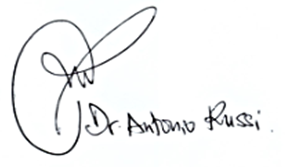 Dr. Antonio Russi.